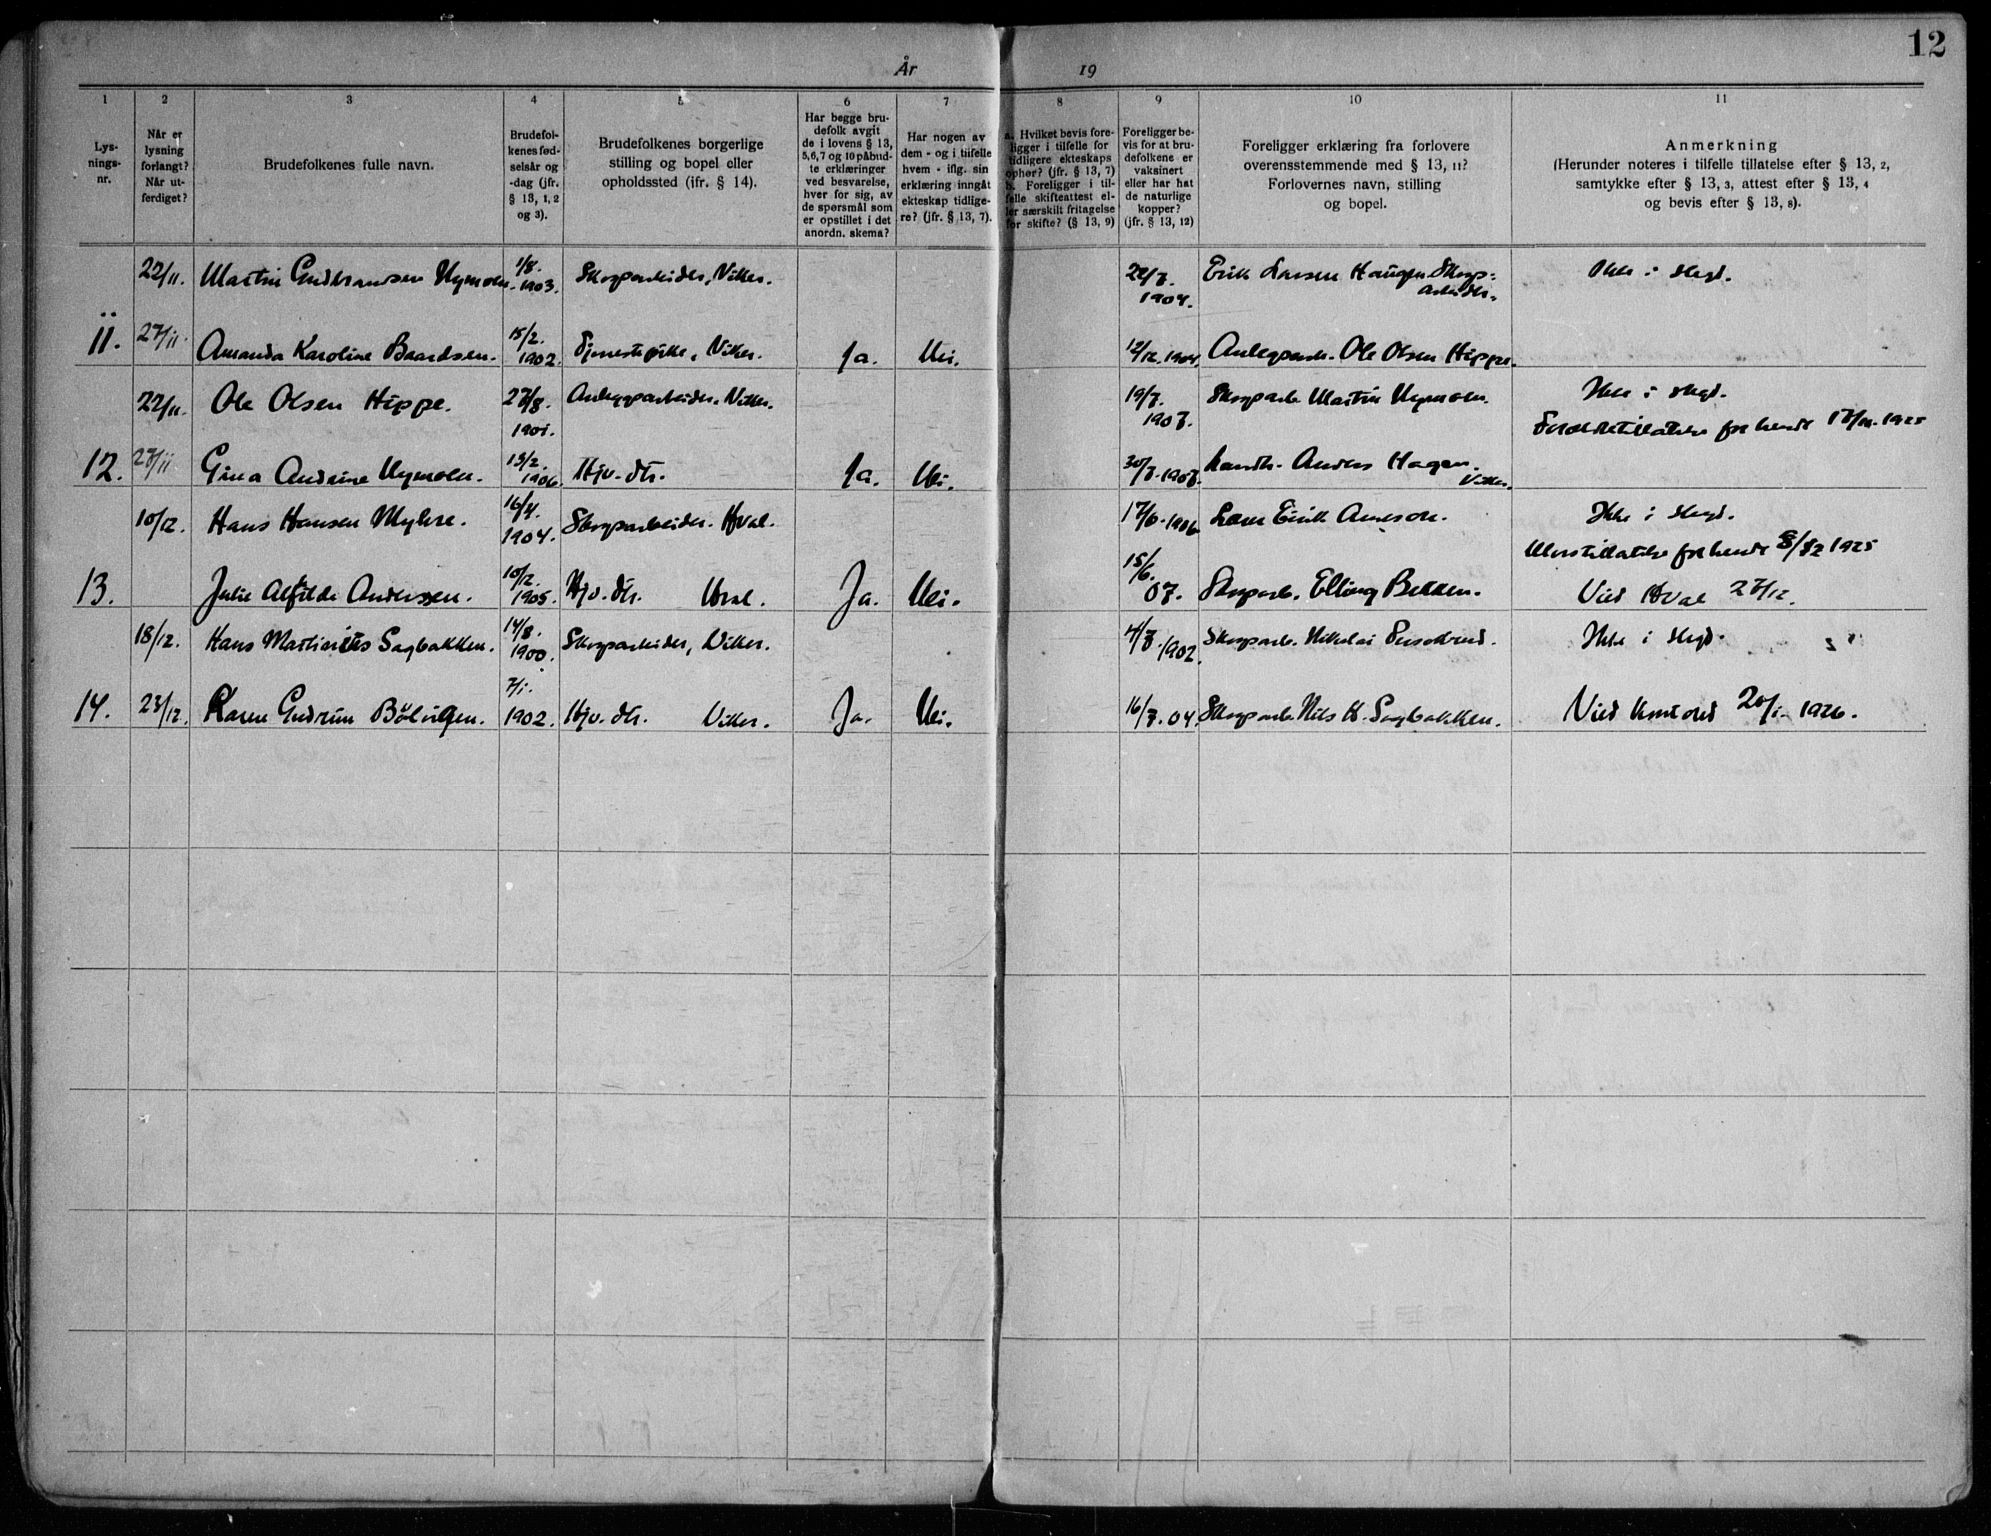 12
År 19
1 2 3 4 5 6 7 8 9 10 11
Lys-
nings-
nr.
Når er
lysning
forlangt?
Når ut-
ferdiget?
Brudefolkenes fulle navn.
Brudefol-
kenes fød-
selsår og
-dag (jfr.
§ 13, 1, 2
og 3).
Brudefolkenes borgerlige
stilling og bopel eller
opholdssted (ifr. § 14).
Har begge bru-
defolk avgit
de i lovens § 13,
5,6,7 og 10 påbud-
te erklæringer
ved besvarelse,
hver for sig, av
de spørsmål som
er opstillet i det
anordn. skema?
Har nogen av
dem - og i tilfelle
hvem - iflg. sin
erklæring inngåt
ekteskap tidlige-
re? (jfr. § 13, 7).
a. Hvilket bevis fore-
ligger i tilfelle for
tidligere ekteskaps
ophør? (jfr. § 13, 7)
b. Foreligger i til-
felle skifteattest el-
ler særskilt fritagelse
for skifte? (§ 13, 9)
Foreligger be-
vis for at bru-
defolkene er
vaksinert
eller har hat
de naturlige
kopper?
(jfr. § 13, 12)
Foreligger erklæring fra forlovere
overensstemmende med § 13, 11?
Forlovernes navn, stilling
og bopel.
Anmerkning
(Herunder noteres i tilfelle tillatelse efter § 13, 2,
samtykke efter § 13, 3, attest efter § 13, 4
og bevis efter § 13, 8).
22/11. Martin Gudbrandsen Nymoen. 1/8. 1903. Skogarbeider, Viker. 22/7. 1904. Erik Larsen Haugen Skog-
arbeider. Ikke i slegt.
11. 27/11. Amanda Karoline Baardsen. 15/2. 1902. Tjenestepike, Viker. Ja. Nei. 12/12.1904. Anlegsarb. Ole Olsen Hippe.
22/11. Ole Olsen Hippe. 27/8. 1901. Anleggsarbeider. Viker. 19/7. 1907. Skogarb. Martin Nymoen. Ikke i slegt.
Foreldretillatelse for hende 1925
12. 27/11 Gina Andrine Nymoen. 13/2. 1906. Hjv. dtr. Ja. Nei. 30/7.1907. Anders Hagen.
Viker.
10/12. Hans Hansen Myhre. 16/4. 1904. Skogarbeider. Hval. 17/6.1906. Lars Eirik Arneson. Ikke i slegt.
for hende 8/12 1925
13. Julie Alfilde Anderssen. 10/12. 1905. Hjv. dtr. Hval. Ja. Nei. 15/6. 07. Skogarb. Elling Bekken. Vied Hval 27/12.
18/12. Hans Martinius Sagbakken. 14/8. 1900. Skogarbeider, Viker. 4/7.1902. Skogarb. Nikolai Ikke i slegt.
14. 23/12. Karen Gudrun Bölvigen. 7/1. 1902. Hjv. dtr. Viker. Ja. Nei. 16/7.04. Skogarb. Nils H. Sagbakken. Vied 20/1 1926.